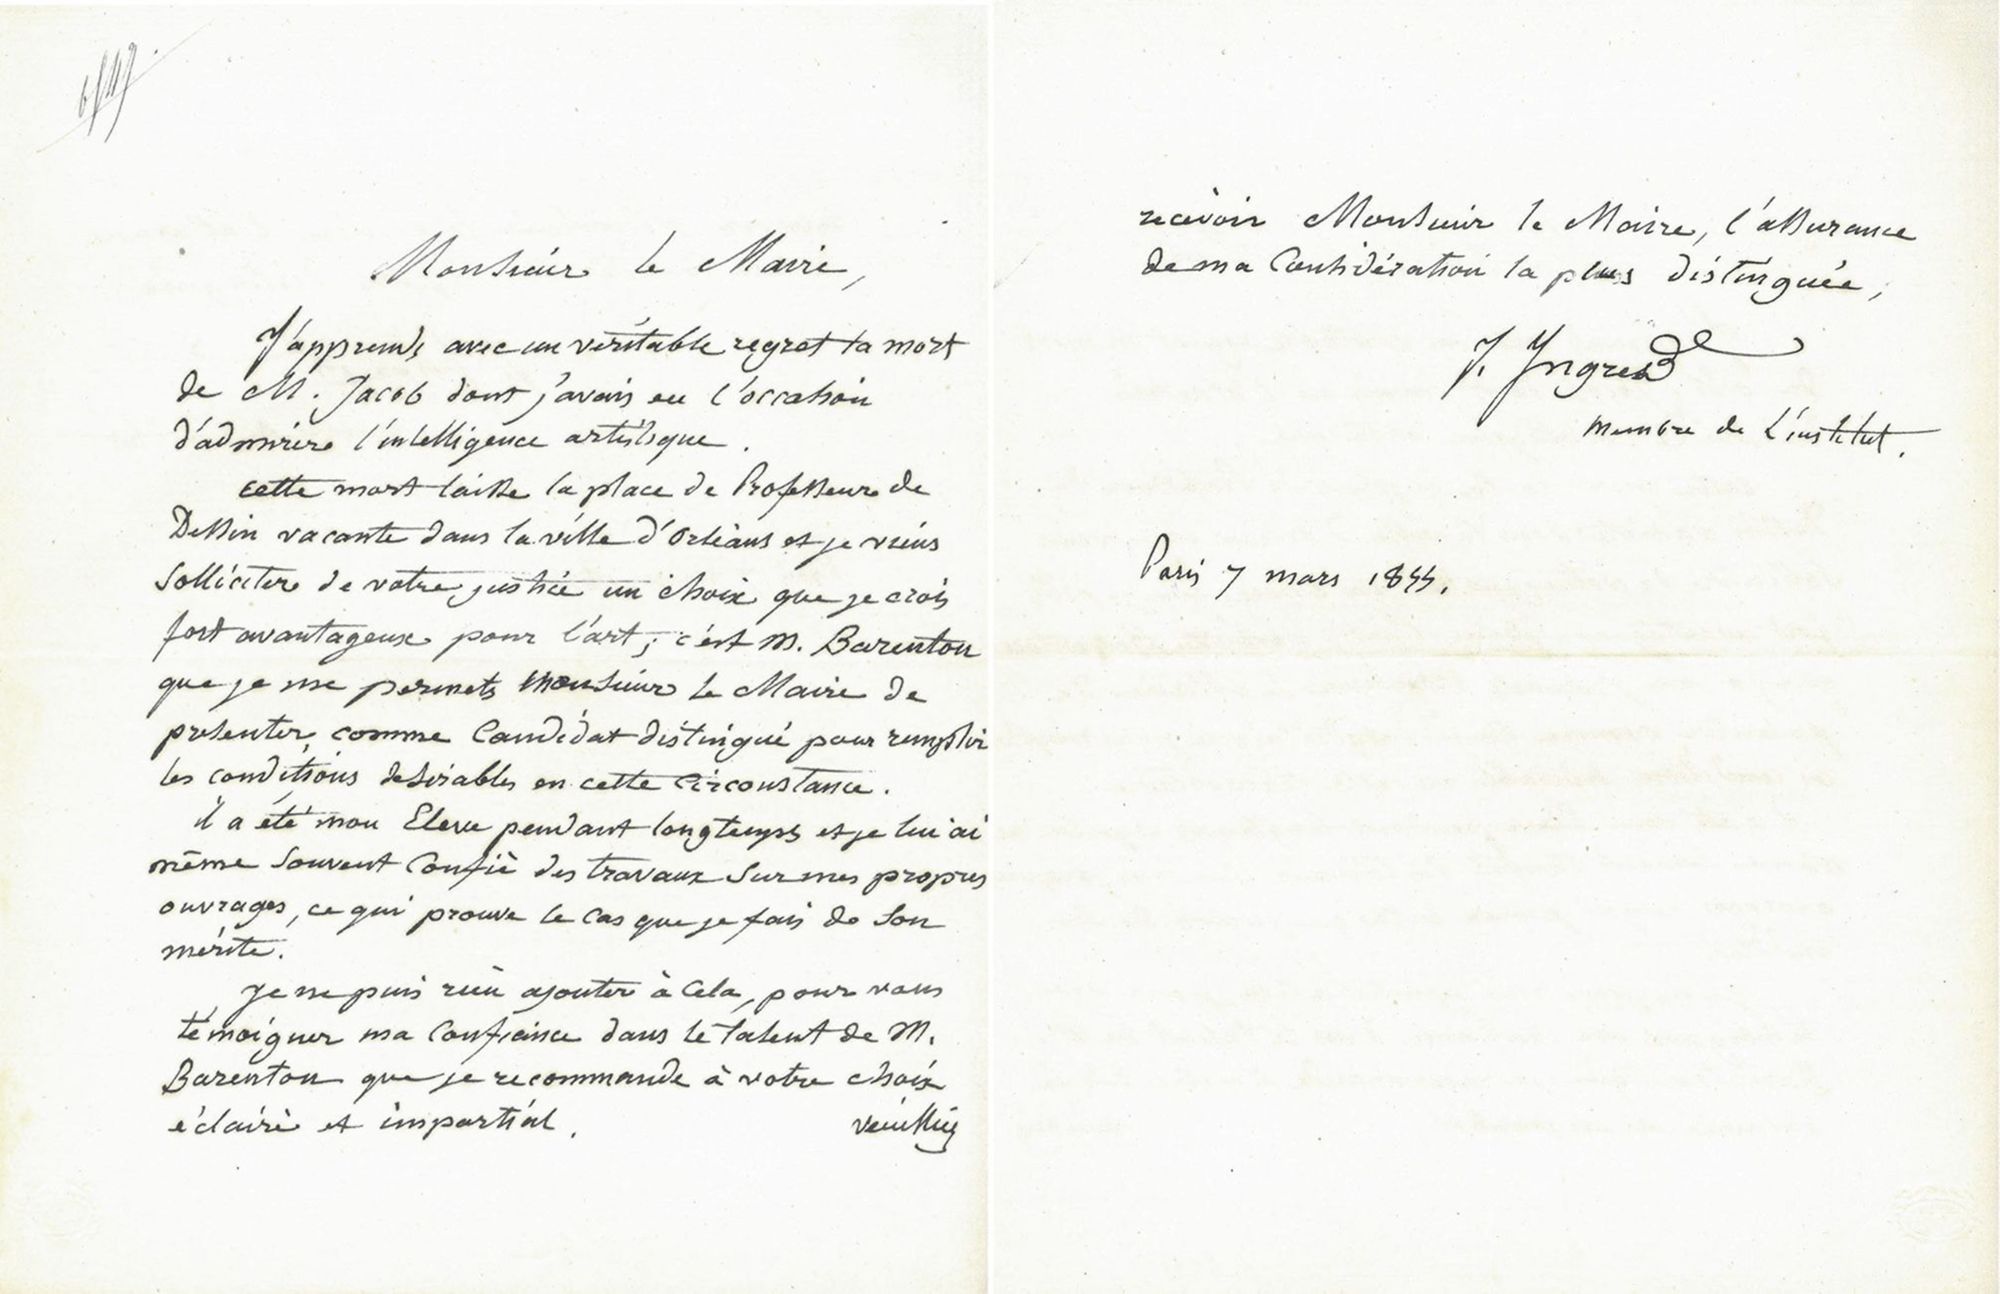 Monsieur le Maire,
J'apprends avec un véritable regret la mort
de M. Jacob dont j'avais eu l'occasion
d'admirer l'intelligence artistique.
cette mort laisse la place de Professeur de
Dessin vacante dans la ville d'Orléans et je viens
solliciter de votre justice un choix que je crois
fort avantageux pour l'art; c'est M. Barenton
que je me permets Monsieur le Maire de
présenter comme Candidat distingué pour remplir
les conditions désirables en cette Circonstance.
il a été mon Eleve pendant longtemps et je lui ai
même souvent Confié des travaux sur mes propres
ouvrages, ce qui prouve le cas que je fais de son
mérite.
Je ne puis rien ajouter à cela, pour vous
témoigner ma Confiance dans le talent de M.
Barenton que je recommande à votre choix
éclairé et impartial. veuilliez
recevoir Monsieur le Maire, l'assurance
de ma Considération la plus distinguée,
J. Ingres
membre de L'institut.
Paris 7 mars 1855.